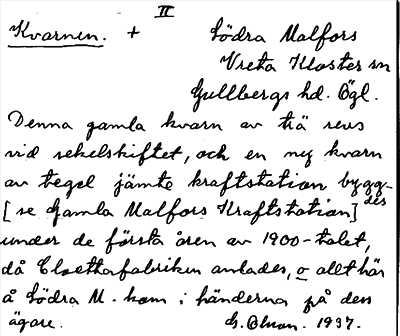 II
Kvarnen. + Södra Malfors
Vreta Kloster sn
Gullbergs hd. Ögl.
Denna gamla kvarn av trä revs
vid sekelskiftet, och en ny kvarn
av tegel jämte kraftstation bygg-
[se Gamla Malfors Kraftstation] des
under de första åren av 1900-talet,
då Cloettafabriken anlades, o allt här
å Södra M. kom i händerna på den
ägare. G. Ohson. 1937.